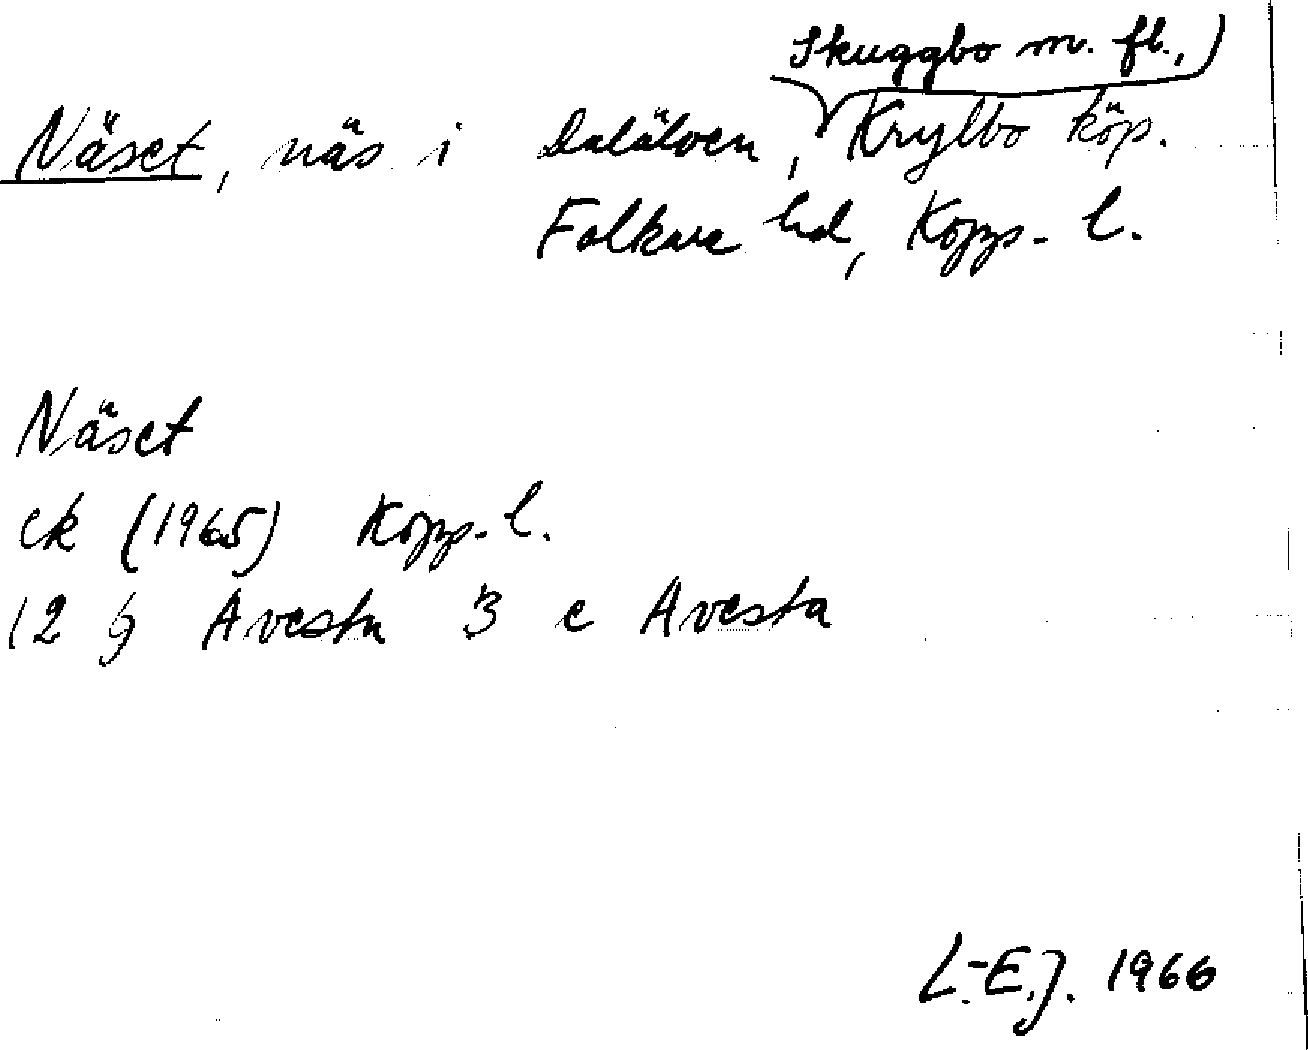 Skuggbo m. fl.,
Näset, näs i Dalälven, Krylbo köp.
Folkare hd, Kopp. l.
Näset
ek (1965) Kopp. l.
12 G Avesta 3 c Avesta
L.-E.J. 1966